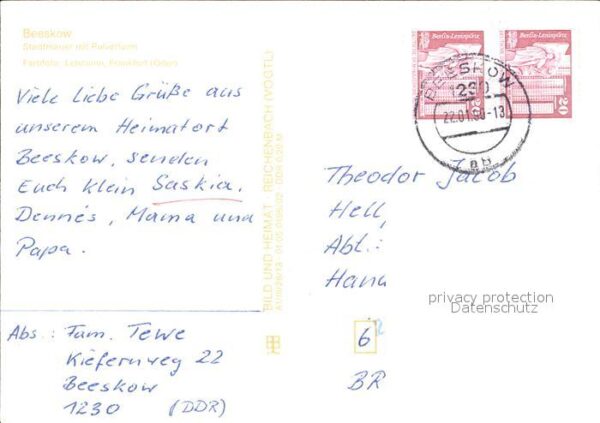 Beeskow
Stadtmauer mit Pulverturm
Viele liebe Grüße aus
unserem Heimatort
Beeskow, senden
Euch klein Saskia,
Dennés, Mama und
Papa.
Abs.: Fam. Tewe
Kiefernweg 22
Beeskow
1230 (DDR)
BILD UND HEIMAT REICHENBACH (VOGTL)
Berlin-Leninplatz
Berlin-Leninplatz
20
BEESKOW
1230
22.01.90-13
Theodor Jacob
Hell,
Abt.:
Hana
privacy protection
Datenschutz
6
BR